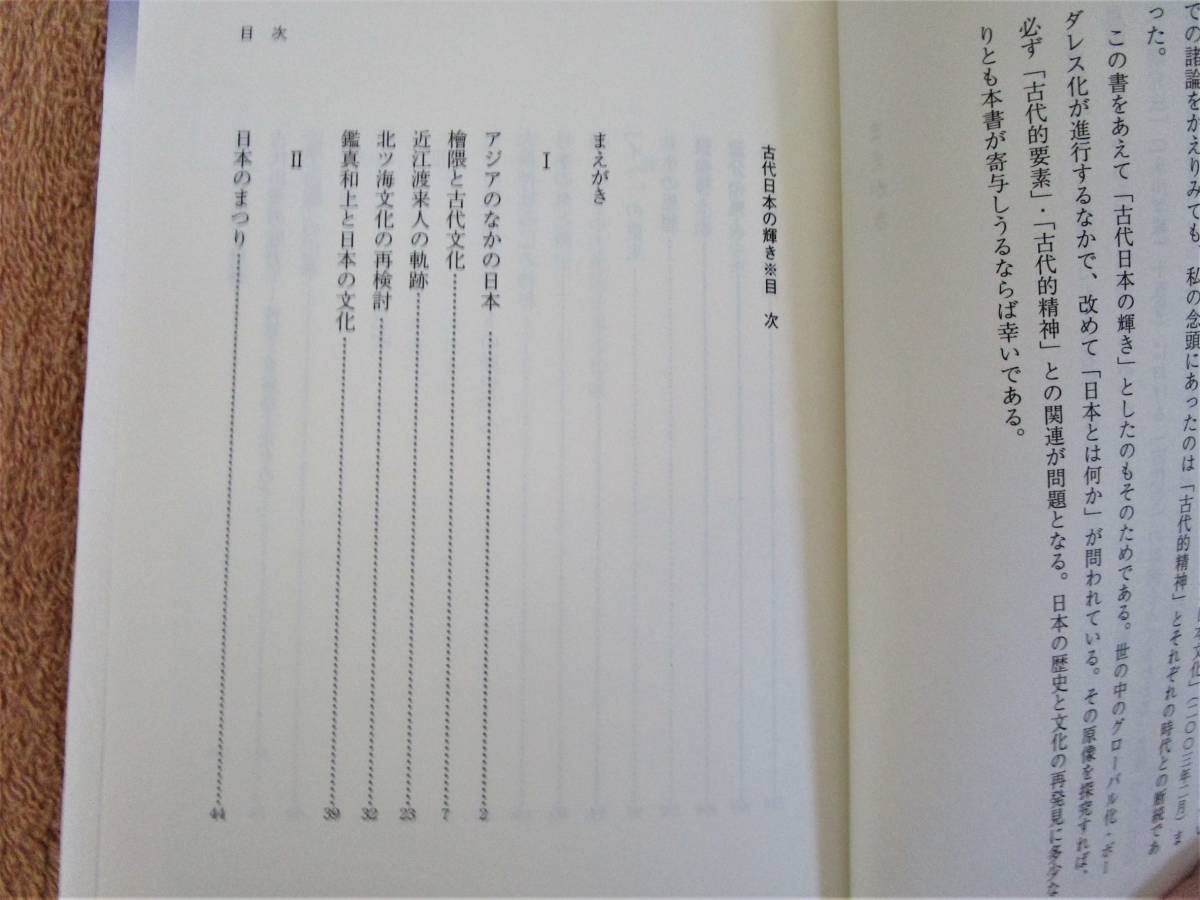 での諸論をかえりみても、私の念頭にあったのは「古代的精神」とそれぞれの時代との断続であ
った。
この書をあえて「古代日本の輝き」としたのもそのためである。世の中のグローバル化・ボー
ダレス化が進行するなかで、改めて「日本とは何か」が問われている。その原像を探究すれば、
必ず「古代的要素」・「古代的精神」との関連が問題となる。日本の歴史と文化の再発見に多少な
りとも本書が寄与しうるならば幸いである。
古代日本の輝き※目 次
まえがき
I
アジアのなかの日本 2
檜隈と古代文化 7
近江渡来人の軌跡 23
北ツ海文化の再検討 32
鑑真和上と日本の文化 39
II
日本のまつり 44
目 次